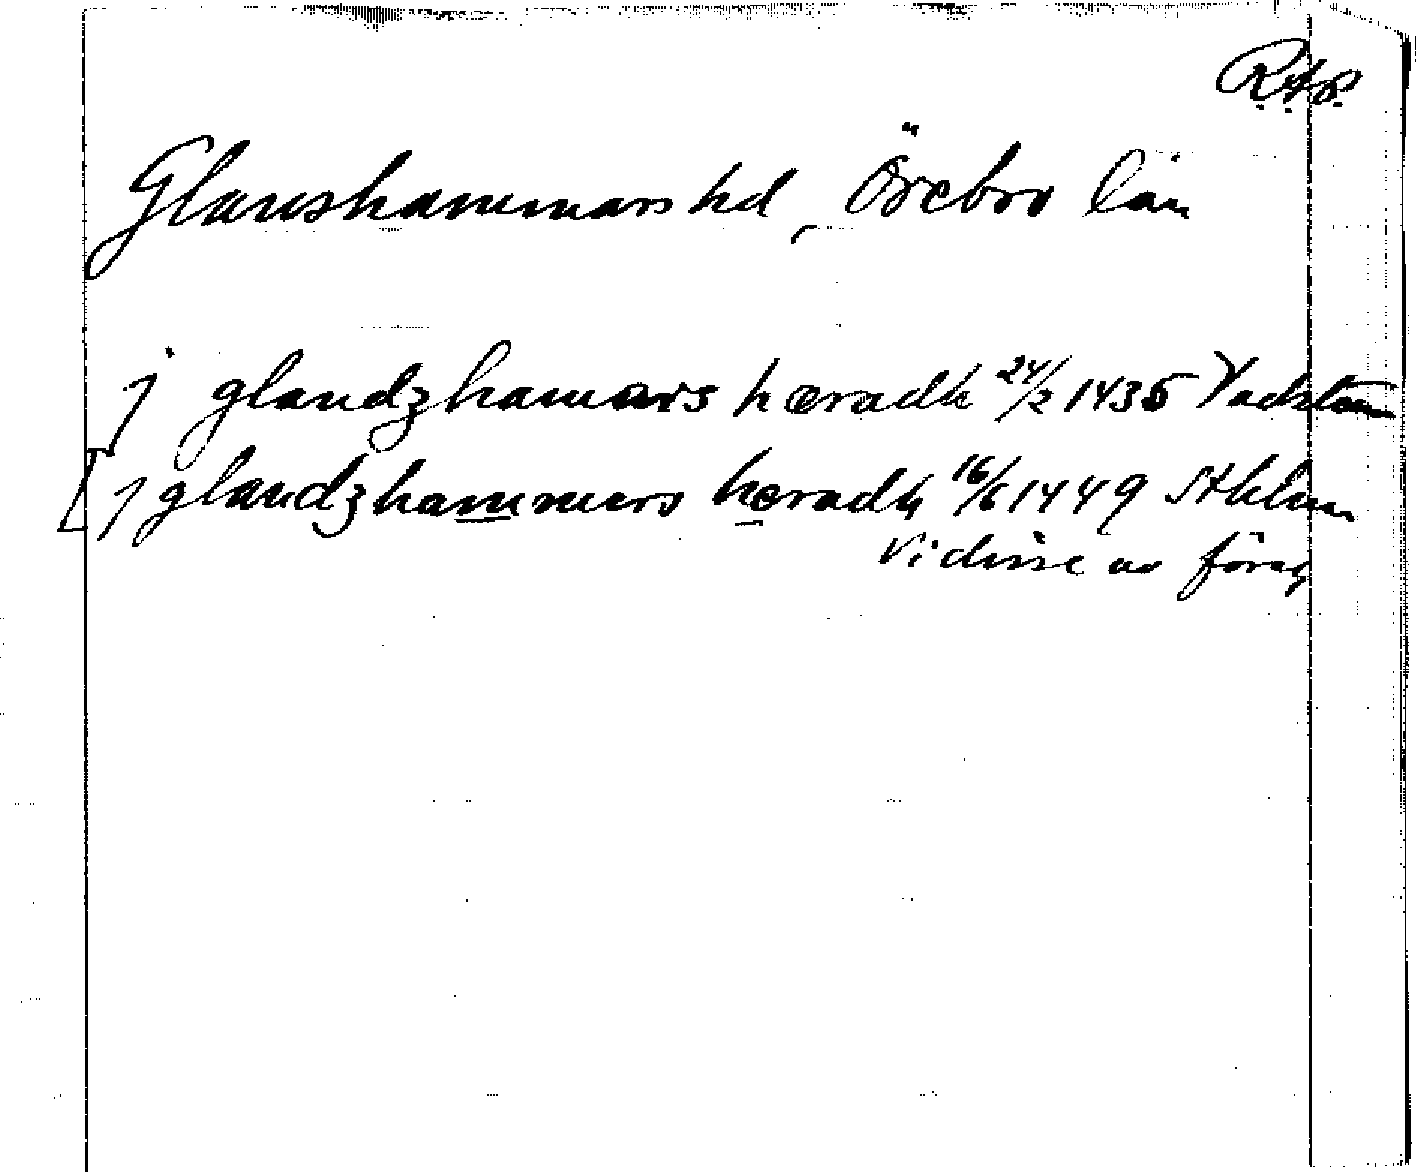 R.A.P.
Glanshammars hd, Örebro län
j glandzhamars hæradh 24/2 1435 Vadstena
[j glandzhammers hæradh 16/6 1449 Sthlm
Vidisse av föreg